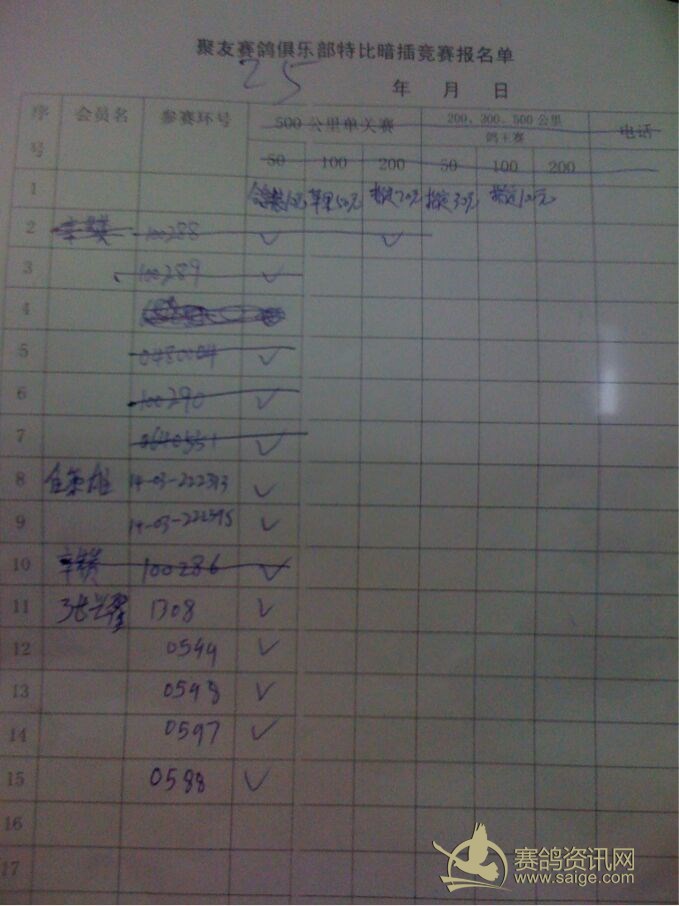 聚友赛鸽俱乐部特比暗插竞赛报名单
25
年 月 日
序号 会员名 参赛环号 500公里单关赛 200、300、500公里鸽王赛 电话
50 100 200 50 100 200
1
2 100288 ✓ ✓
3 100289 ✓
4
5 0480004 ✓
6 100290 ✓
7 0640551 ✓
8 任荣雄 14-03-222393 ✓
9 14-03-222395 ✓
10 100286 ✓
11 1308 ✓
12 0549 ✓
13 0598 ✓
14 0597 ✓
15 0588 ✓
16
17
赛鸽资讯网
www.saige.com